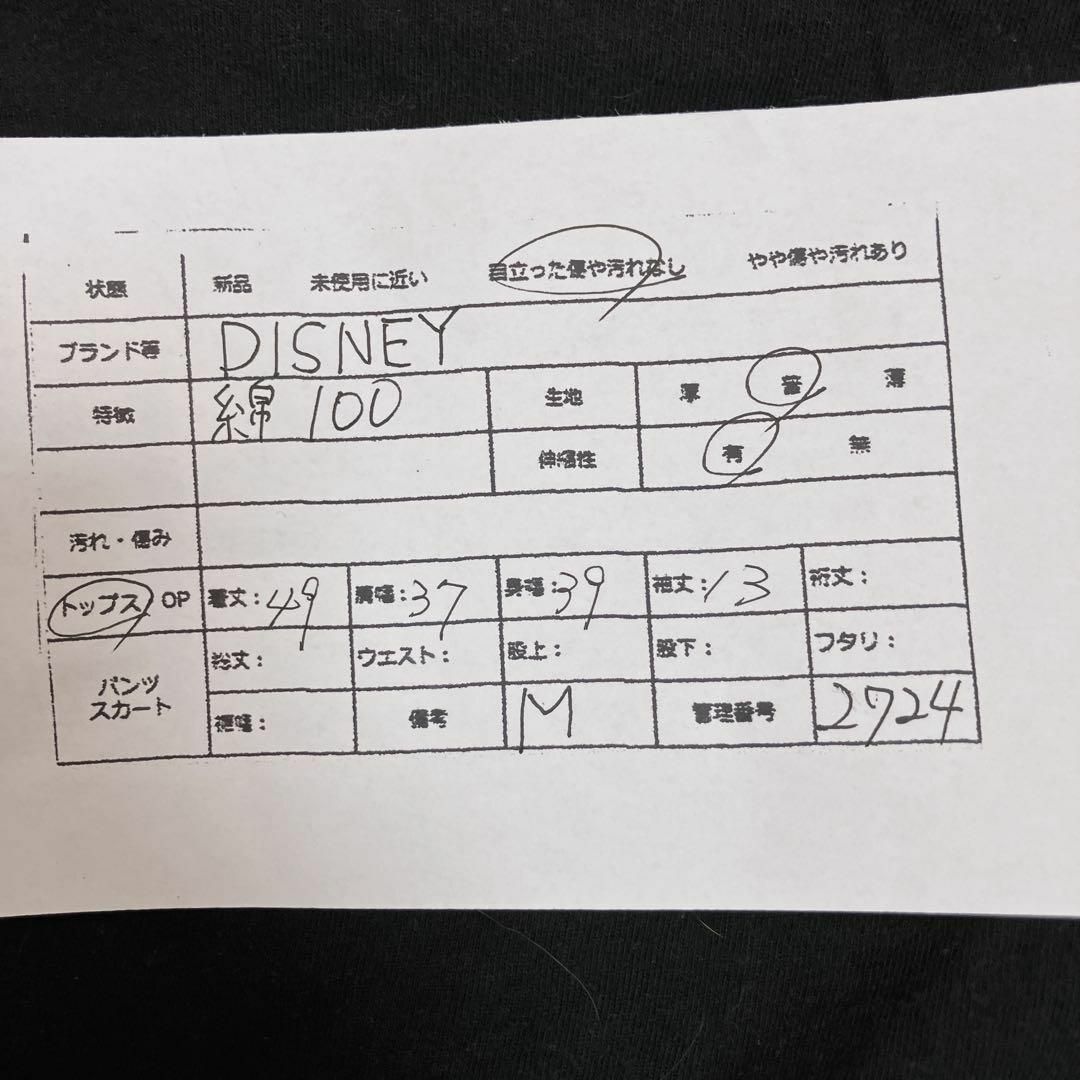 状態 新品 未使用に近い 目立った傷や汚れなし やや傷や汚れあり
ブランド等 DISNEY
特徴 綿 100 生地 厚 普 薄
伸縮性 有 無
汚れ・傷み
トップス OP 着丈:49 肩幅:37 身幅:39 袖丈:13 裄丈:
パンツ スカート 総丈: ウエスト: 股上: 股下: ワタリ:
裾幅: 備考 M 管理番号 2724